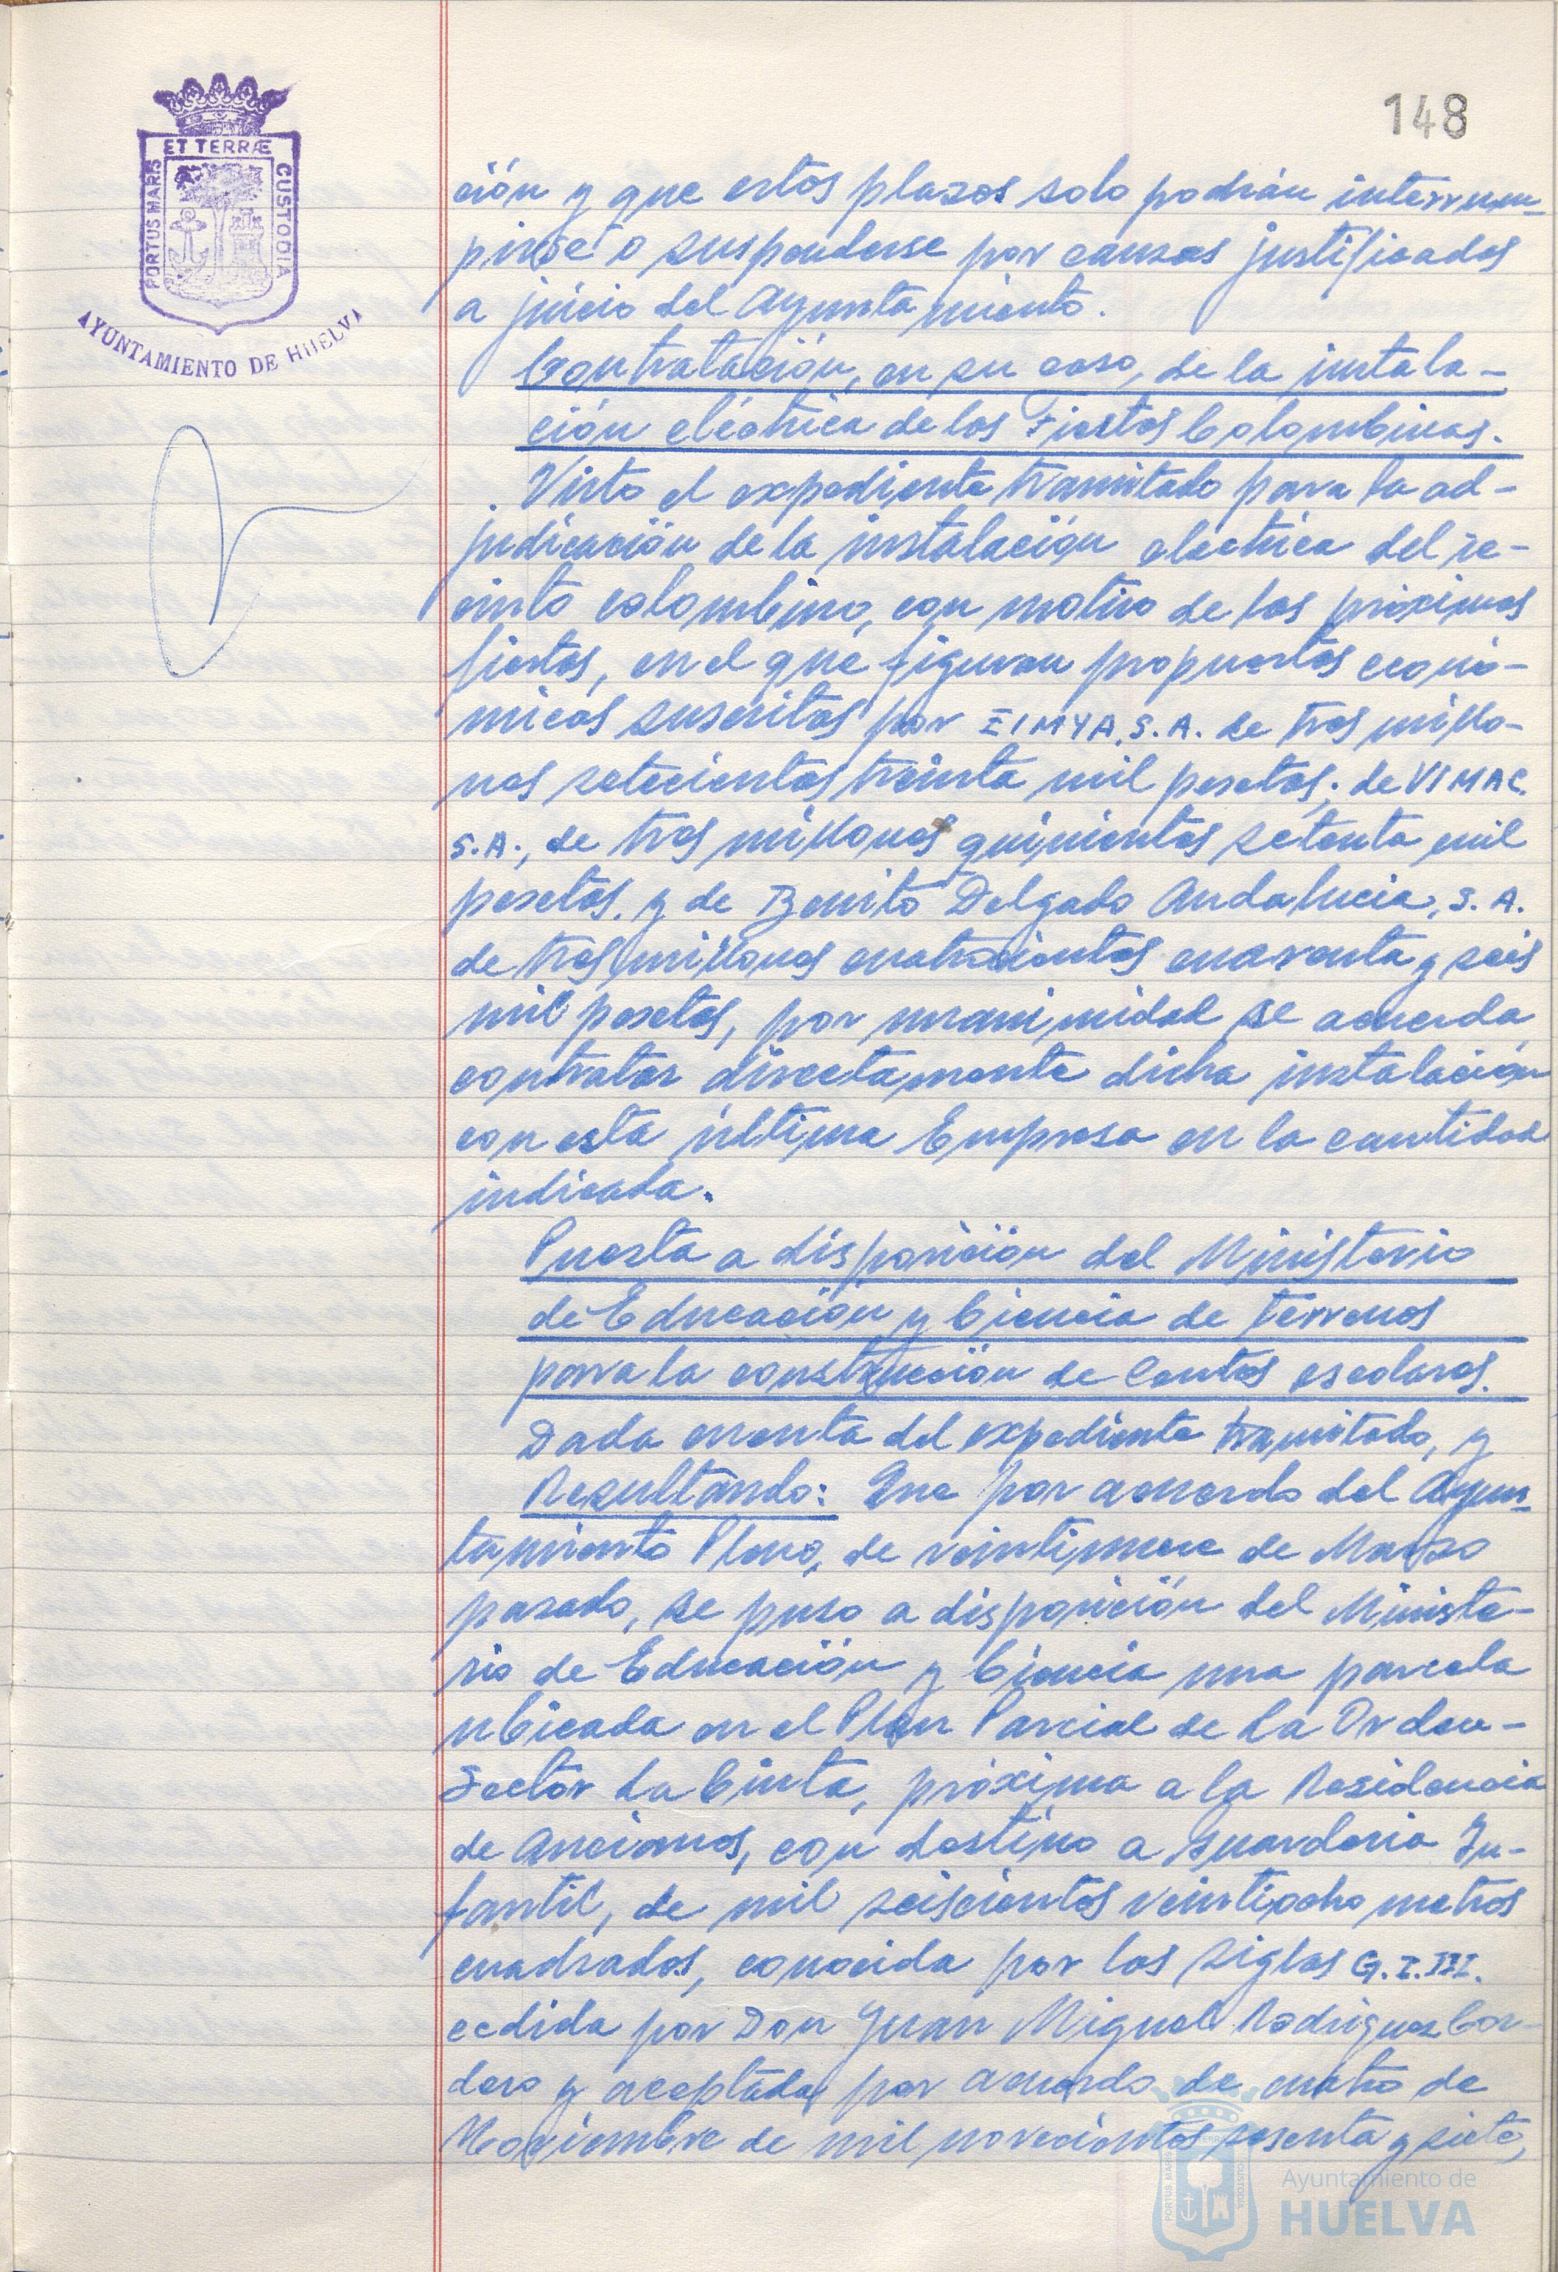 148
ET TERRÆ
PORTUS MARIS
CUSTODIA
AYUNTAMIENTO DE HUELVA
ción y que estos plazos solo podrán interrum-
pirse o suspenderse por causas justificadas
a juicio del Ayuntamiento.
Contratación, en su caso, de la instala-
ción eléctrica de las Fiestas Colombinas.
Visto el expediente tramitado para la ad-
judicación de la instalación electrica del re-
cinto colombino, con motivo de las próximas
fiestas, en el que figuran propuestas econó-
micas suscritas por EIMYA, S.A. de tres millo-
nes setecientas treinta mil pesetas; de VIMAC.
S.A., de tres millones quinientas setenta mil
pesetas, y de Benito Delgado Andalucia, S.A.
de tres millones cuatrocientas cuarenta y seis
mil pesetas, por unanimidad se acuerda
contratar directamente dicha instalación
con esta última Empresa en la cantidad
indicada.
Puesta a disposición del Ministerio
de Educación y Ciencia de terrenos
para la construcción de Centros escolares.
Dada cuenta del expediente tramitado, y
Resultando: Que por acuerdo del Ayun-
tamiento Pleno, de veintinueve de Marzo
pasado, se puso a disposición del Ministe-
rio de Educación y Ciencia una parcela
ubicada en el Plan Parcial de La Orden-
Sector La Cinta, próxima a la Residencia
de Ancianos, con destino a Guardería In-
fantil, de mil seiscientos veintiocho metros
cuadrados, conocida por las siglas G.I.III.
cedida por Don Juan Miguel Rodriguez Cor-
dero y aceptada por acuerdo de cuatro de
Noviembre de mil novecientos sesenta y siete,
Ayuntamiento de
HUELVA